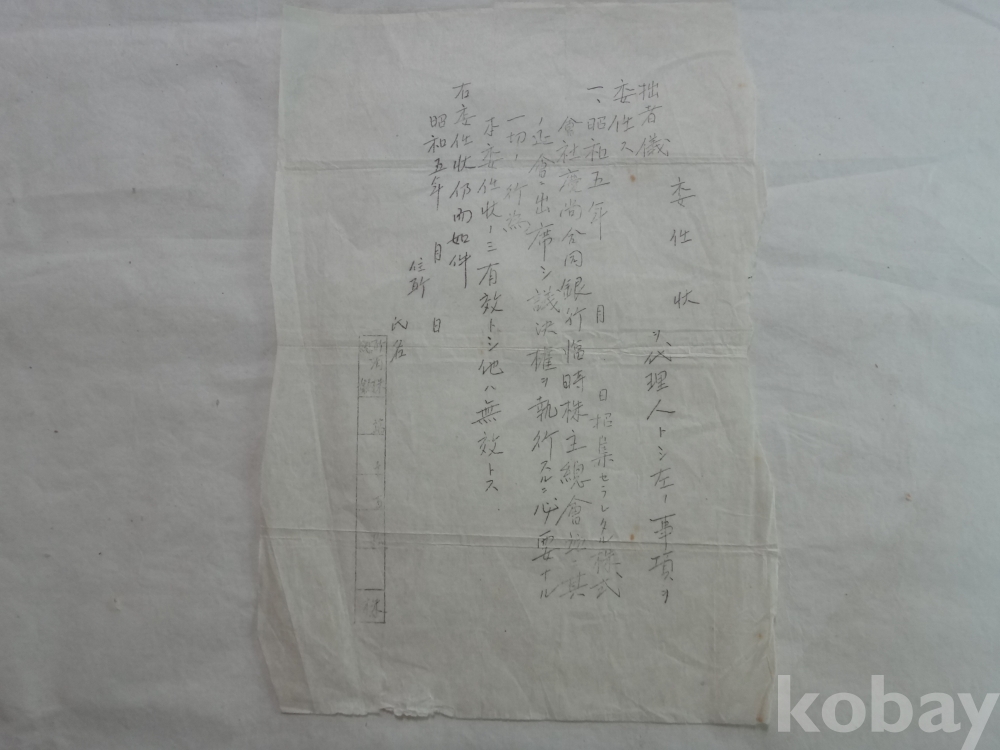 委任状
拙者儀 ヲ、代理人トシ左ノ事項ヲ
委任ス
一、昭和五年 月 日招集セラレタル株式
會社慶尚合同銀行臨時株主總會並ニ其
延會ニ出席シ議決權ヲ執行スルニ必要ナル
一切ノ行為
本委任状ノミ有效トシ他ハ無效トス
右委任状仍而如件
昭和五年 月 日
住所
氏名
株
kobay